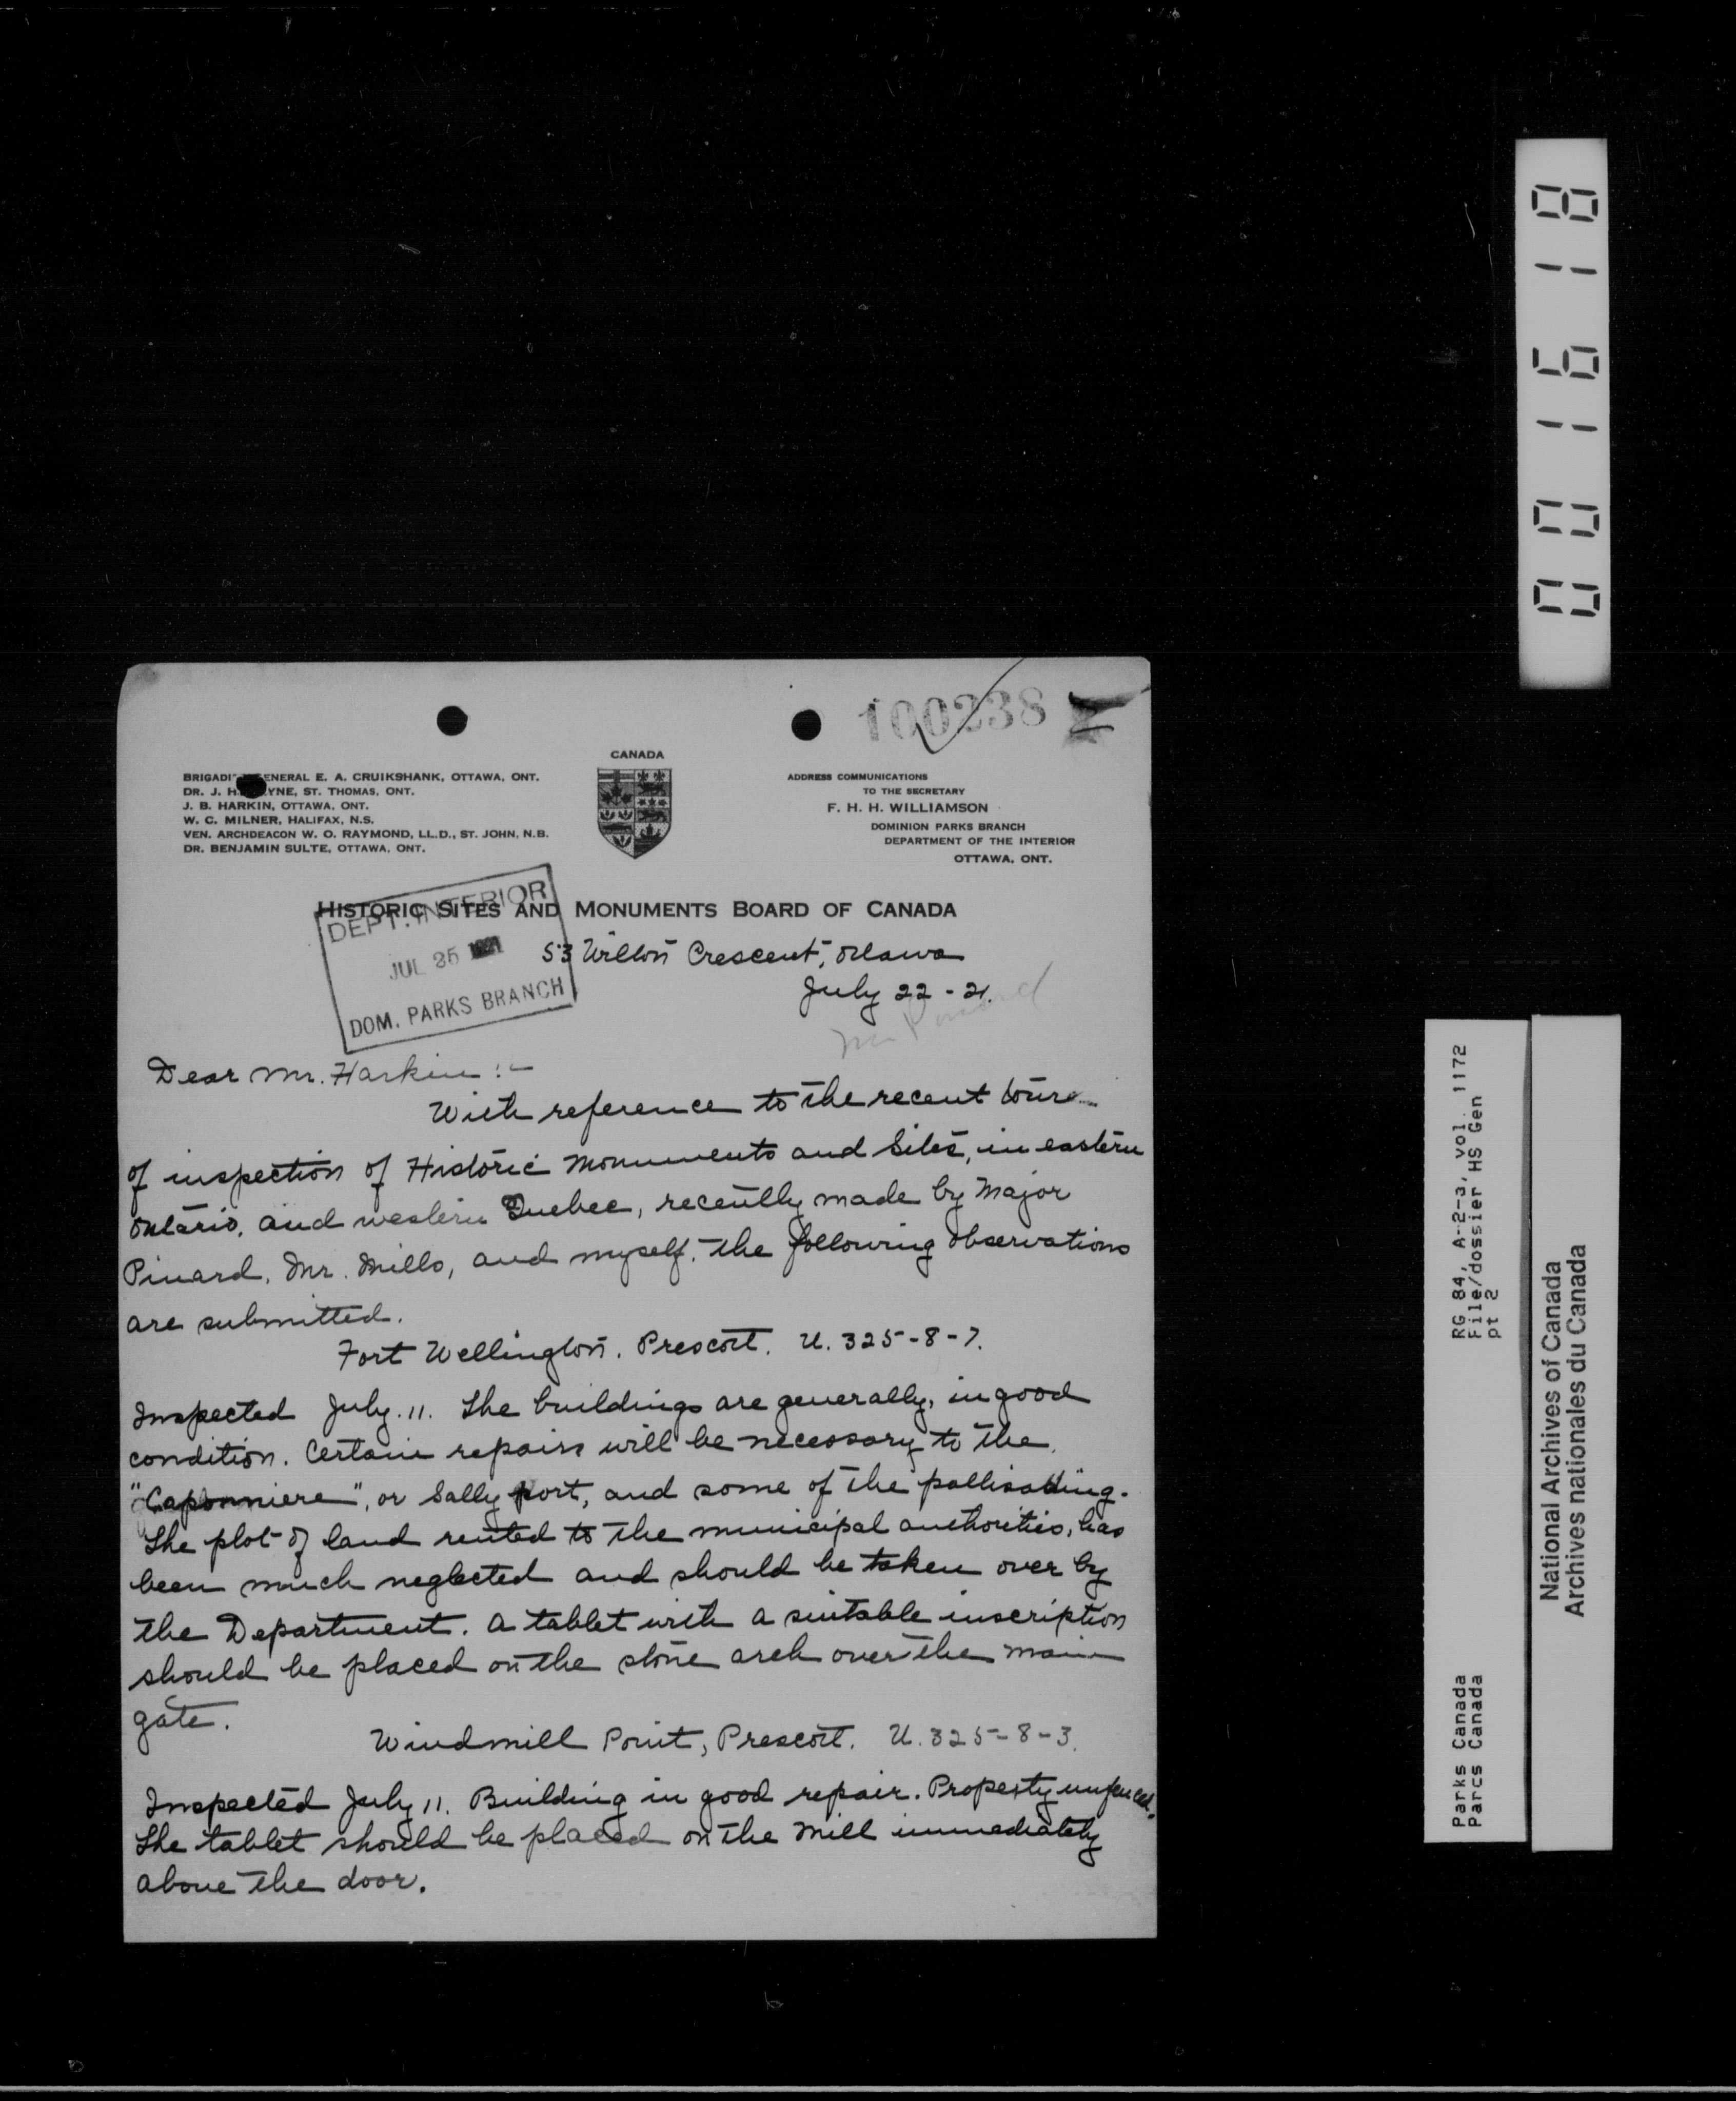 100238
CANADA
BRIGADI ENERAL E. A. CRUIKSHANK, OTTAWA, ONT.
DR. J. H. YNE, ST. THOMAS, ONT.
J. B. HARKIN, OTTAWA, ONT.
W. C. MILNER, HALIFAX, N.S.
VEN. ARCHDEACON W. O. RAYMOND, LL.D., ST. JOHN, N.B.
DR. BENJAMIN SULTE, OTTAWA, ONT.
ADDRESS COMMUNICATIONS
TO THE SECRETARY
F. H. H. WILLIAMSON
DOMINION PARKS BRANCH
DEPARTMENT OF THE INTERIOR
OTTAWA, ONT.
HISTORIC SITES AND MONUMENTS BOARD OF CANADA
DEPT. INTERIOR
JUL 25 1921
DOM. PARKS BRANCH
53 Wilton Crescent, Ottawa
July 22 - 21.
Dear Mr. Harkin :-
With reference to the recent tour
of inspection of Historic Monuments and Sites, in eastern
Ontario, and western Quebec, recently made by Major
Pinard, Mr. Mills, and myself, the following observations
are submitted.
Fort Wellington. Prescott. U. 325-8-7.
Inspected July. 11. The buildings are generally, in good
condition. Certain repairs will be necessary to the
"Caponniere", or Sally port, and some of the pallisading.
The plot of land rented to the municipal authorities, has
been much neglected and should be taken over by
the Department. A tablet with a suitable inscription
should be placed on the stone arch over the main
gate.
Windmill Point, Prescott. U. 325-8-3.
Inspected July 11. Building in good repair. Property unfenced.
The tablet should be placed on the mill immediately
above the door.
001618
RG 84, A-2-3, vol. 1172
File/dossier HS Gen
pt 2
Parks Canada
Parcs Canada
National Archives of Canada
Archives nationales du Canada